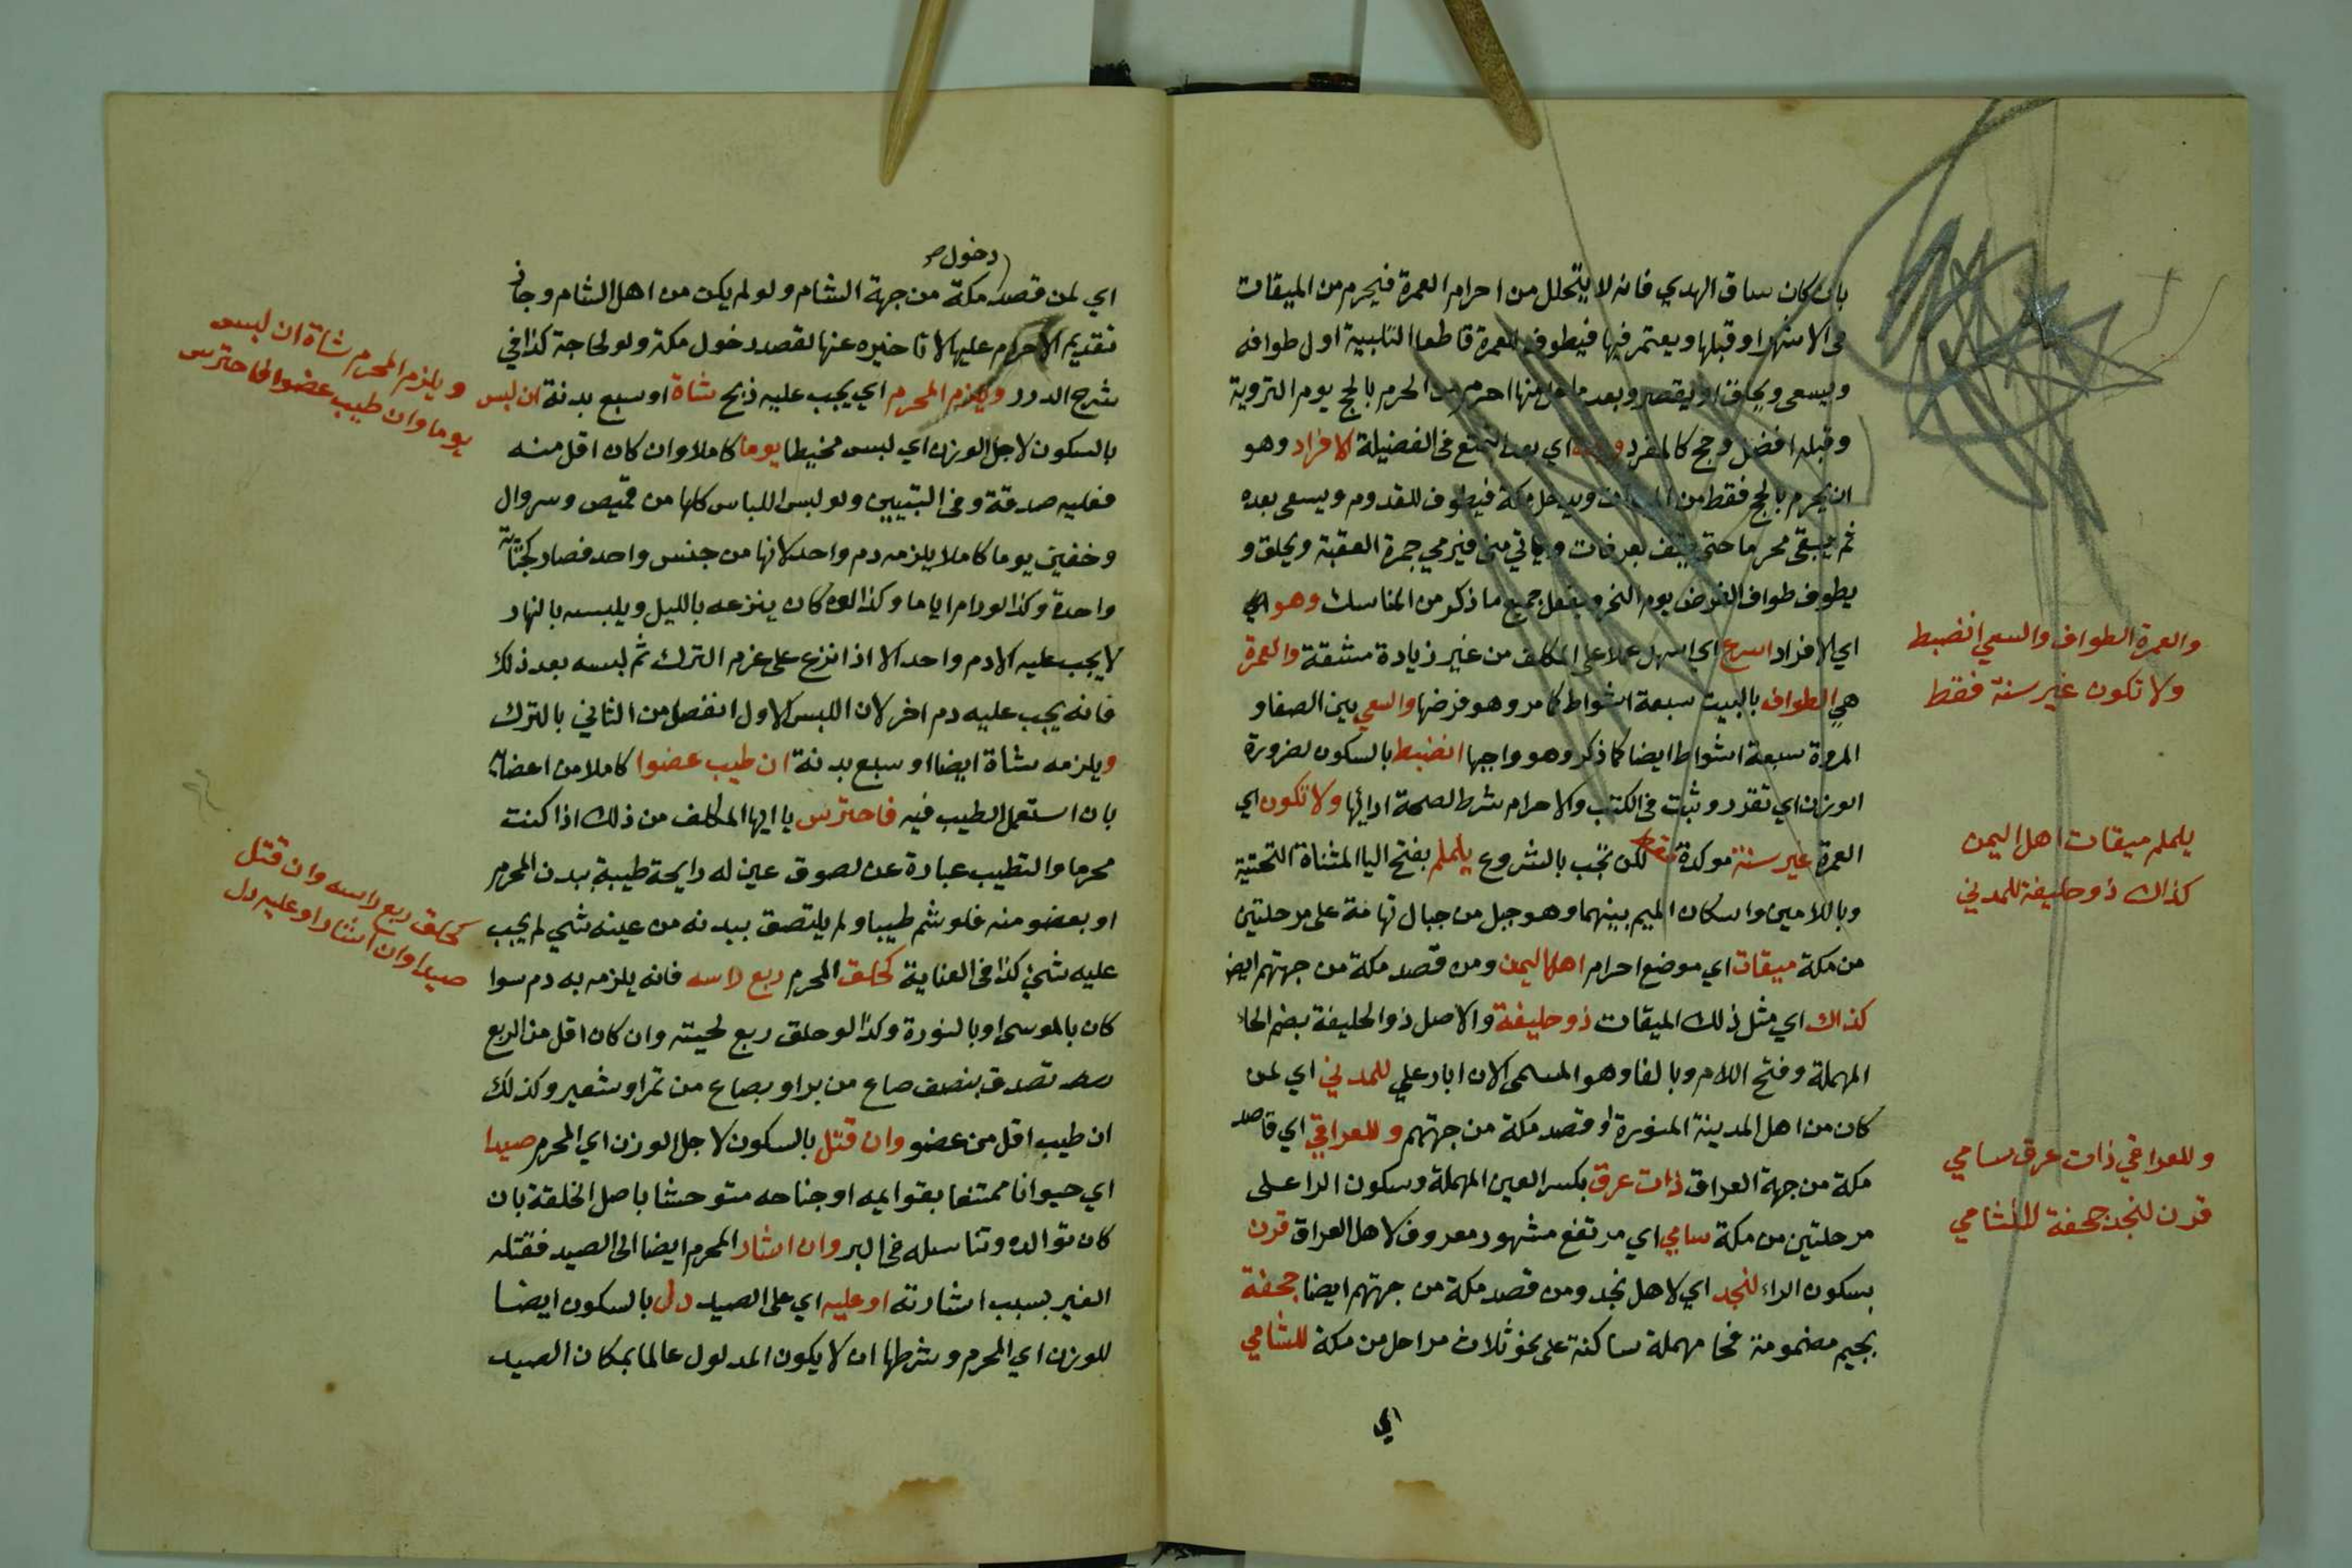 بان كان ساق الهدي فانه لا يتحلل من احرام العمرة فيحرم من الميقات
في الاشهر او قبلها ويعتمر فيها فيطوف للعمرة قاطعا التلبية اول طوافه
ويسعى ويحلق او يقصر وبعد ما حل منها احرم من الحرم بالحج يوم التروية
وقبله افضل وحج كالمفرد وبعده اي بعد التمتع في الفضيلة الافراد وهو
ان يحرم بالحج فقط من الميقات ويدخل مكة فيطوف للقدوم ويسعى بعده
ثم يبقى محرما حتى يقف بعرفات وياتي منى فيرمي جمرة العقبة ويحلق و
يطوف طواف الفرض يوم النحر ويفعل جميع ما ذكر من المناسك وهو
اي الافراد اسرع اي اسهل عملا على المكلف من غير زيادة مشقة والعمرة
هي الطواف بالبيت سبعة اشواط كما مر وهو فرضها والسعي بين الصفا و
المروة سبعة اشواط ايضا كما ذكر وهو واجبها انضبط بالسكون لضرورة
الوزن اي تقرر وثبت في الكتب والاحرام شرط لصحة ادائها ولا تكون اي
العمرة غير سنة موكدة فقط لكن تجب بالشروع يلملم بفتح اليا المثناة التحتية
وباللامين واسكان الميم بينهما وهو جبل من جبال تهامة على مرحلتين
من مكة ميقات اي موضع احرام اهل اليمن ومن قصد مكة من جهتهم ايضا
كذاك اي مثل ذلك الميقات ذو حليفة والاصل ذو الحليفة بضم الحاء
المهملة وفتح اللام وبالفا وهو المسمى الان ابار علي للمدني اي لمن
كان من اهل المدينة المنورة او قصد مكة من جهتهم وللعراقي اي قاصد
مكة من جهة العراق ذات عرق بكسر العين المهملة وسكون الرا على
مرحلتين من مكة سامي اي مرتفع مشهور معروف لاهل العراق قرن
بسكون الراء لنجد اي لاهل نجد ومن قصد مكة من جهتهم ايضا جحفة
بجيم مضمومة فحا مهملة ساكنة على نحو ثلاث مراحل من مكة للشامي
اي
والعمرة الطواف والسعي انضبط
ولا تكون غير سنة فقط
يلملم ميقات اهل اليمن
كذاك ذو حليفة للمدني
وللعراقي ذات عرق سامي
قرن لنجد جحفة للشامي
دخول صح
اي لمن قصد مكة من جهة الشام ولو لم يكن من اهل الشام وجاز
تقديم الاحرام عليها لا تاخيره عنها لقصد دخول مكة ولو لحاجة كذا في
شرح الدرر ويلزم المحرم اي يجب عليه ذبح شاة او سبع بدنة ان لبس
بالسكون لاجل الوزن اي لبس مخيطا يوما كاملا وان كان اقل منه
فعليه صدقة وفي التبيين ولو لبس اللباس كلها من قميص وسروال
وخفين يوما كاملا يلزمه دم واحد لانها من جنس واحد فصار كجناية
واحدة وكذا لو دام اياما وكذا لو كان ينزعه بالليل ويلبسه بالنهار
لا يجب عليه الا دم واحد الا اذا نزع على عزم الترك ثم لبسه بعد ذلك
فانه يجب عليه دم اخر لان اللبس الاول انفصل من الثاني بالترك
ويلزمه شاة ايضا او سبع بدنة ان طيب عضوا كاملا من اعضائه
بان استعمل الطيب فيه فاحترس يا ايها المكلف من ذلك اذا كنت
محرما والتطيب عبارة عن لصوق عين له رايحة طيبة ببدن المحرم
او بعضو منه فلو شم طيبا ولم يلتصق ببدنه من عينه شي لم يجب
عليه شيء كذا في العناية كحلق المحرم ربع راسه فانه يلزمه به دم سوا
كان بالموسى او بالنورة وكذا لو حلق ربع لحيته وان كان اقل من الربع
تصدق بنصف صاع من بر او بصاع من تمر او شعير وكذلك
ان طيب اقل من عضو وان قتل بالسكون لاجل الوزن اي المحرم صيدا
اي حيوانا ممتنعا بقوايمه او جناحه متوحشا باصل الخلقة بان
كان توالده وتناسله في البر وان اشار المحرم ايضا الى الصيد فقتله
الغير بسبب اشارته او عليه اي على الصيد دل بالسكون ايضا
للوزن اي المحرم وشرطها ان لا يكون المدلول عالما بمكان الصيد
ويلزم المحرم شاة ان لبس
يوما وان طيب عضوا فاحترس
كحلق ربع راسه وان قتل
صيدا وان اشار او عليه دل